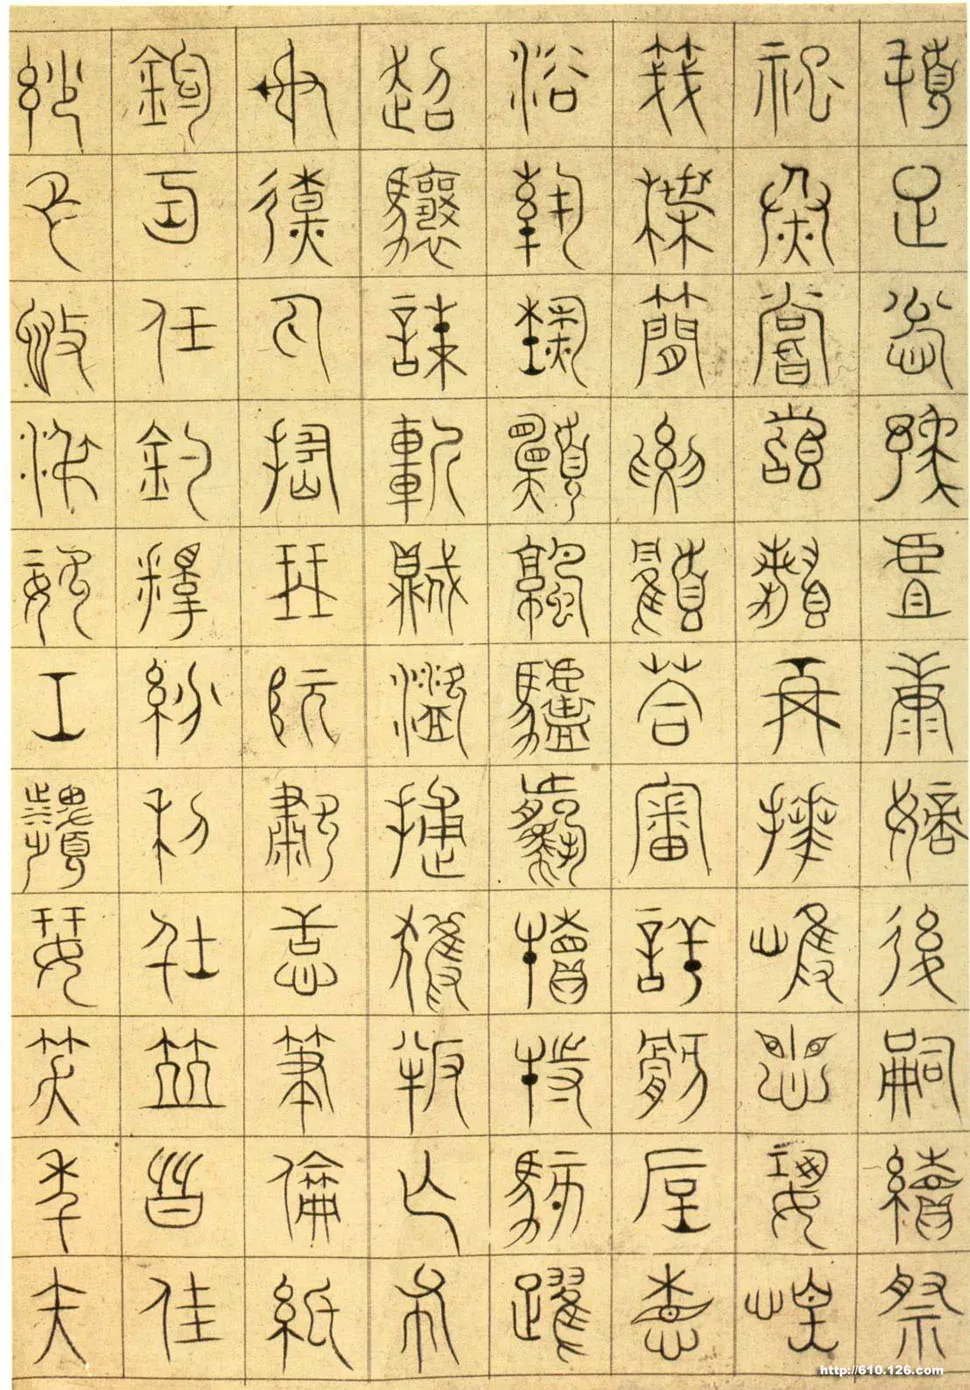 頓足悅豫且康嫡後嗣續祭
祀蒸嘗稽顙再拜悚懼恐惶
牋牒簡要顧答審詳骸垢想
浴執熱願涼驢騾犢特駭躍
超驤誅斬賊盜捕獲叛亡布
射遼丸嵇琴阮嘯恬筆倫紙
鈞巧任釣釋紛利俗並皆佳
妙毛施淑姿工顰妍笑年矢
http://610.126.com